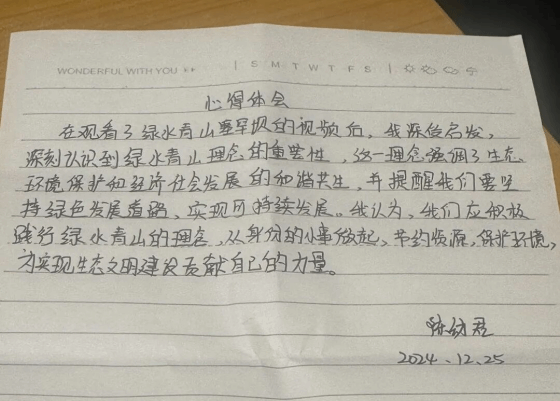 WONDERFUL WITH YOU
S M T W T F S
心得体会
在观看了绿水青山塞罕坝的视频后，我深受启发，
深刻认识到绿水青山理念的重要性，这一理念强调了生态
环境保护和经济社会发展的和谐共生，并提醒我们要坚
持绿色发展道路、实现可持续发展。我认为，我们应积极
践行绿水青山的理念，从身份的小事做起，节约资源，保护环境，
为实现生态文明建设贡献自己的力量。
陈 君
2024.12.25